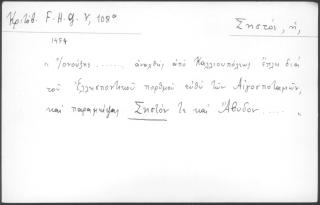 Κριτόβ. F.H.G. V, 108ᵃ
Σηστός, ἡ,
1454
" Ἰονούζης ...... ἀναχθεὶς ἀπὸ Καλλιουπόλεως ἔπλει διὰ
τοῦ Ἑλλησποντικοῦ πορθμοῦ εὐθὺ τῶν Αἰγοσποταμῶν,
καὶ παραμείψας Σηστόν τε καὶ Ἄβυδον ..... "